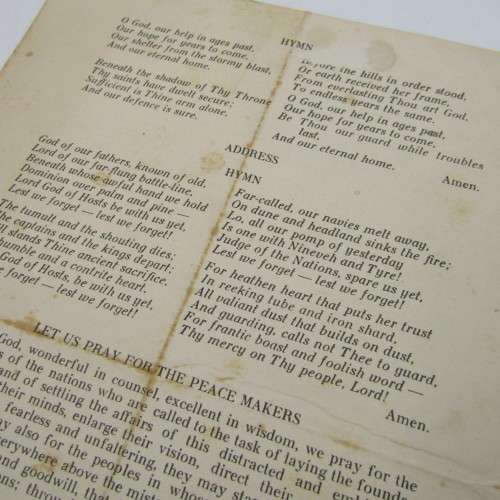 HYMN
O God, our help in ages past,
Our hope for years to come,
Our shelter from the stormy blast,
And our eternal home.
Beneath the shadow of Thy Throne
Thy saints have dwelt secure;
Sufficient is Thine arm alone,
And our defence is sure.
Before the hills in order stood,
Or earth received her frame,
From everlasting Thou art God,
To endless years the same.
O God, our help in ages past,
Our hope for years to come,
Be Thou our guard while troubles
last,
And our eternal home.
Amen.
ADDRESS
HYMN
God of our fathers, known of old,
Lord of our far flung battle-line,
Beneath whose awful hand we hold
Dominion over palm and pine —
Lord God of Hosts be with us yet,
Lest we forget — lest we forget!
The tumult and the shouting dies;
The captains and the kings depart;
stands Thine ancient sacrifice,
humble and a contrite heart.
God of Hosts, be with us yet,
we forget — lest we forget!
Far-called, our navies melt away,
On dune and headland sinks the fire;
Lo, all our pomp of yesterday
Is one with Nineveh and Tyre!
Judge of the Nations, spare us yet,
Lest we forget — lest we forget!
For heathen heart that puts her trust
In reeking tube and iron shard,
All valiant dust that builds on dust,
And guarding, calls not Thee to guard,
For frantic boast and foolish word —
Thy mercy on Thy people, Lord!
Amen.
LET US PRAY FOR THE PEACE MAKERS
God, wonderful in counsel, excellent in wisdom, we pray for the
of the nations who are called to the task of laying the
and of settling the affairs of this distracted and
their minds, enlarge their vision, direct their
fearless and unfaltering, they may
also for the peoples in whose
everywhere above the
and goodwill, that